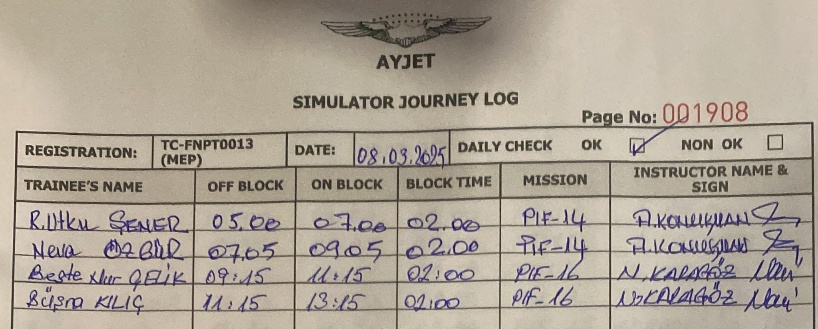 AYJET
SIMULATOR JOURNEY LOG
Page No: 001908
REGISTRATION: TC-FNPT0013 (MEP) DATE: 08.03.2025 DAILY CHECK OK NON OK
TRAINEE'S NAME OFF BLOCK ON BLOCK BLOCK TIME MISSION INSTRUCTOR NAME & SIGN
R.Utku ŞENER 05.00 07.00 02.00 PIF-14
Neva ÖZBİR 07.05 09.05 02.00 PIF-14
Beste Nur ÇELİK 09:15 11:15 02:00 PIF-16 N. KARAGÖZ
Büşra KILIÇ 11:15 13:15 02:00 PIF-16 N. KARAGÖZ